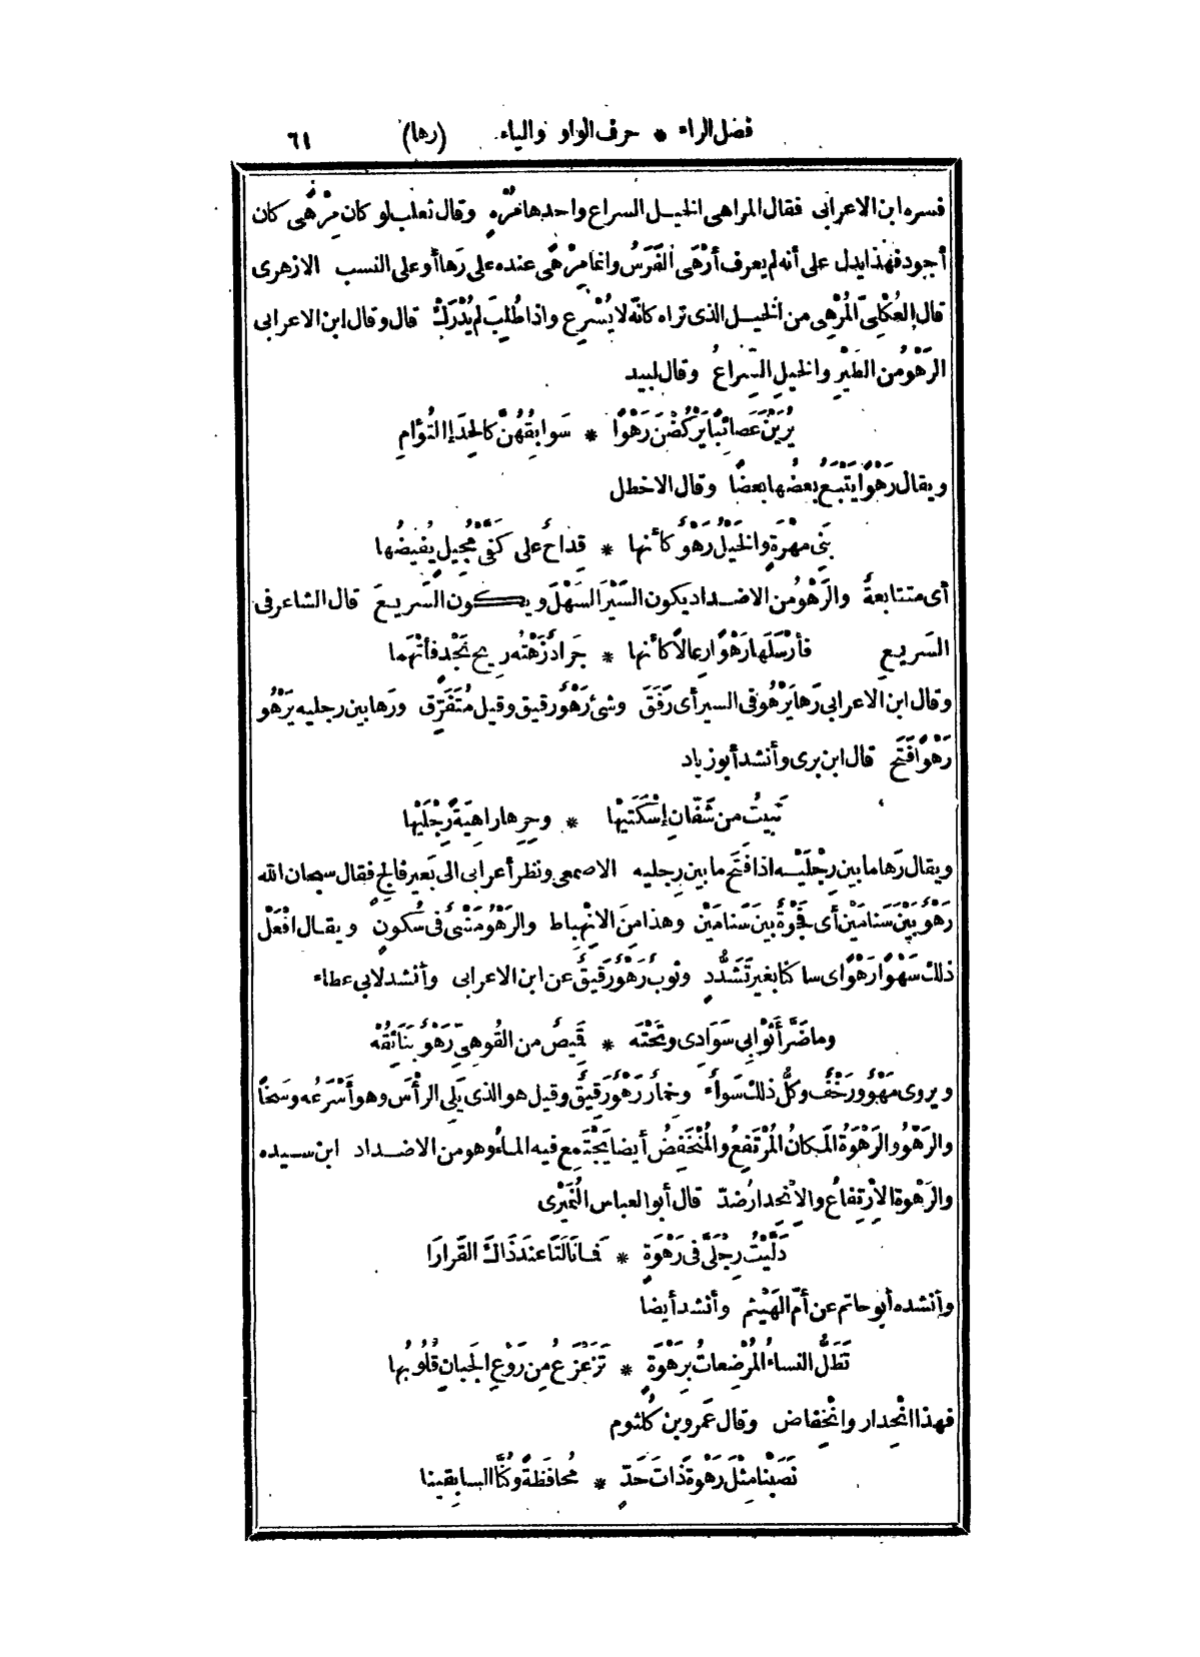 فصل الراء * حرف الواو والياء (رها) ٦١
فسره ابن الاعرابى فقال المراهى الخيل السراع واحدها مُرْهٍ وقال ثعلب لو كان مِرْهًى كان
أجود فهذا يدل على أنه لم يعرف أرْهَى الفَرَسُ وانما مِرْهًى عنده على رَها أو على النسب الازهرى
قال العُكْلِىّ المُرْهِى من الخيل الذى تراه كأنّه لا يُسْرِع واذا طُلِبَ لم يُدْرَكْ قال وقال ابن الاعرابى
الرَّهْوُ من الطَّيْرِ والخيلِ السِّراعُ وقال لبيد
يُرَيْنَ عَصائبًا يَرْكُضْنَ رَهْوًا * سَوابِقُهُنَّ كالحِدَإ التُّؤامِ
ويقال رَهْوًا يَتْبَعُ بعضُها بعضًا وقال الاخطل
بَنِى مهْرَةٍ والخَيْلُ رَهْوٌ كأنها * قِداحٌ على كَفَّىْ مُجِيلٍ يُفيضُها
أى متتابعةٌ والرَّهْوُ من الاضداد يكون السَّيْرَ السَّهْلَ ويكون السَّريعَ قال الشاعر فى
السَّريعِ فأرْسَلَها رَهْوًا رِعالًا كأنها * جَرادٌ زَهَتْه ريحُ نَجْدٍ فأتْهَما
وقال ابن الاعرابى رَها يَرْهُو فى السير أى رَفَقَ وشئ رَهْوٌ رقيق وقيل مُتَفَرِّق ورَها بين رجليه يَرْهُو
رَهْوًا فَتَح قال ابن برى وأنشد أبو زياد
تَبيتُ من شَفّانِ إسْكَتَيْها * وحِرِها راهِيَةً رِجْلَيْها
ويقال رَها ما بين رِجْلَيْه اذا فَتَح ما بين رِجليه الاصمعى ونظر أعرابى الى بَعير فالِجٍ فقال سبحان الله
رَهْوٌ بَيْنَ سَنامَيْن أى فَجْوَةٌ بينَ سَنامَيْنِ وهذا مِنَ الانْهِباط والرَهْوُ مَشْىٌ فى سُكونٍ ويقال افْعَلْ
ذلك سَهْوًا رَهْوًا اى ساكنًا بغير تَشَدُّدٍ وثوبٌ رَهْوٌ رَقيقٌ عن ابن الاعرابى وأنشد لابى عطاء
وما ضَرَّ أَثْوابِى سَوَادِى وتَحْتَه * قَميصٌ من القُوهِىِّ رَهْوٌ بَنائِقُهْ
ويروى مَهْوٌ ورَخْفٌ وكُلُّ ذلك سَواءٌ وخمارٌ رَهْوٌ رَقيقٌ وقيل هو الذى يَلِى الرأسَ وهو أَسْرَعُه وسَخًا
والرَهْوُ والرَهْوَةُ المَكانُ المُرْتَفِعُ والمُنْخَفِضُ أيضا يَجْتَمِع فيه الماءُ وهو من الاضداد ابن سيده
والرَهْوة الارْتِفاعُ والانْحِدارُ ضدّ قال أبو العباس النُّمَيْرى
دَلَّيْتُ رِجْلَىَّ فى رَهْوَةٍ * فما نَالَتا عندَ ذَاكَ القَرارَا
وأنشده أبو حاتم عن أمّ الهَيْثم وأنشد أيضا
تَظَلُّ النساءُ المُرْضِعاتُ برَهْوَةٍ * تَزَعْزَعُ مِن رَوْعِ الجَبانِ قُلُوبُها
فهذا انْحِدار وانْخِفاض وقال عَمرو بن كُلثوم
نَصَبْنا مِثْلَ رَهْوةَ ذاتَ حَدٍّ * مُحافَظَةً وكُنَّا السابِقينا